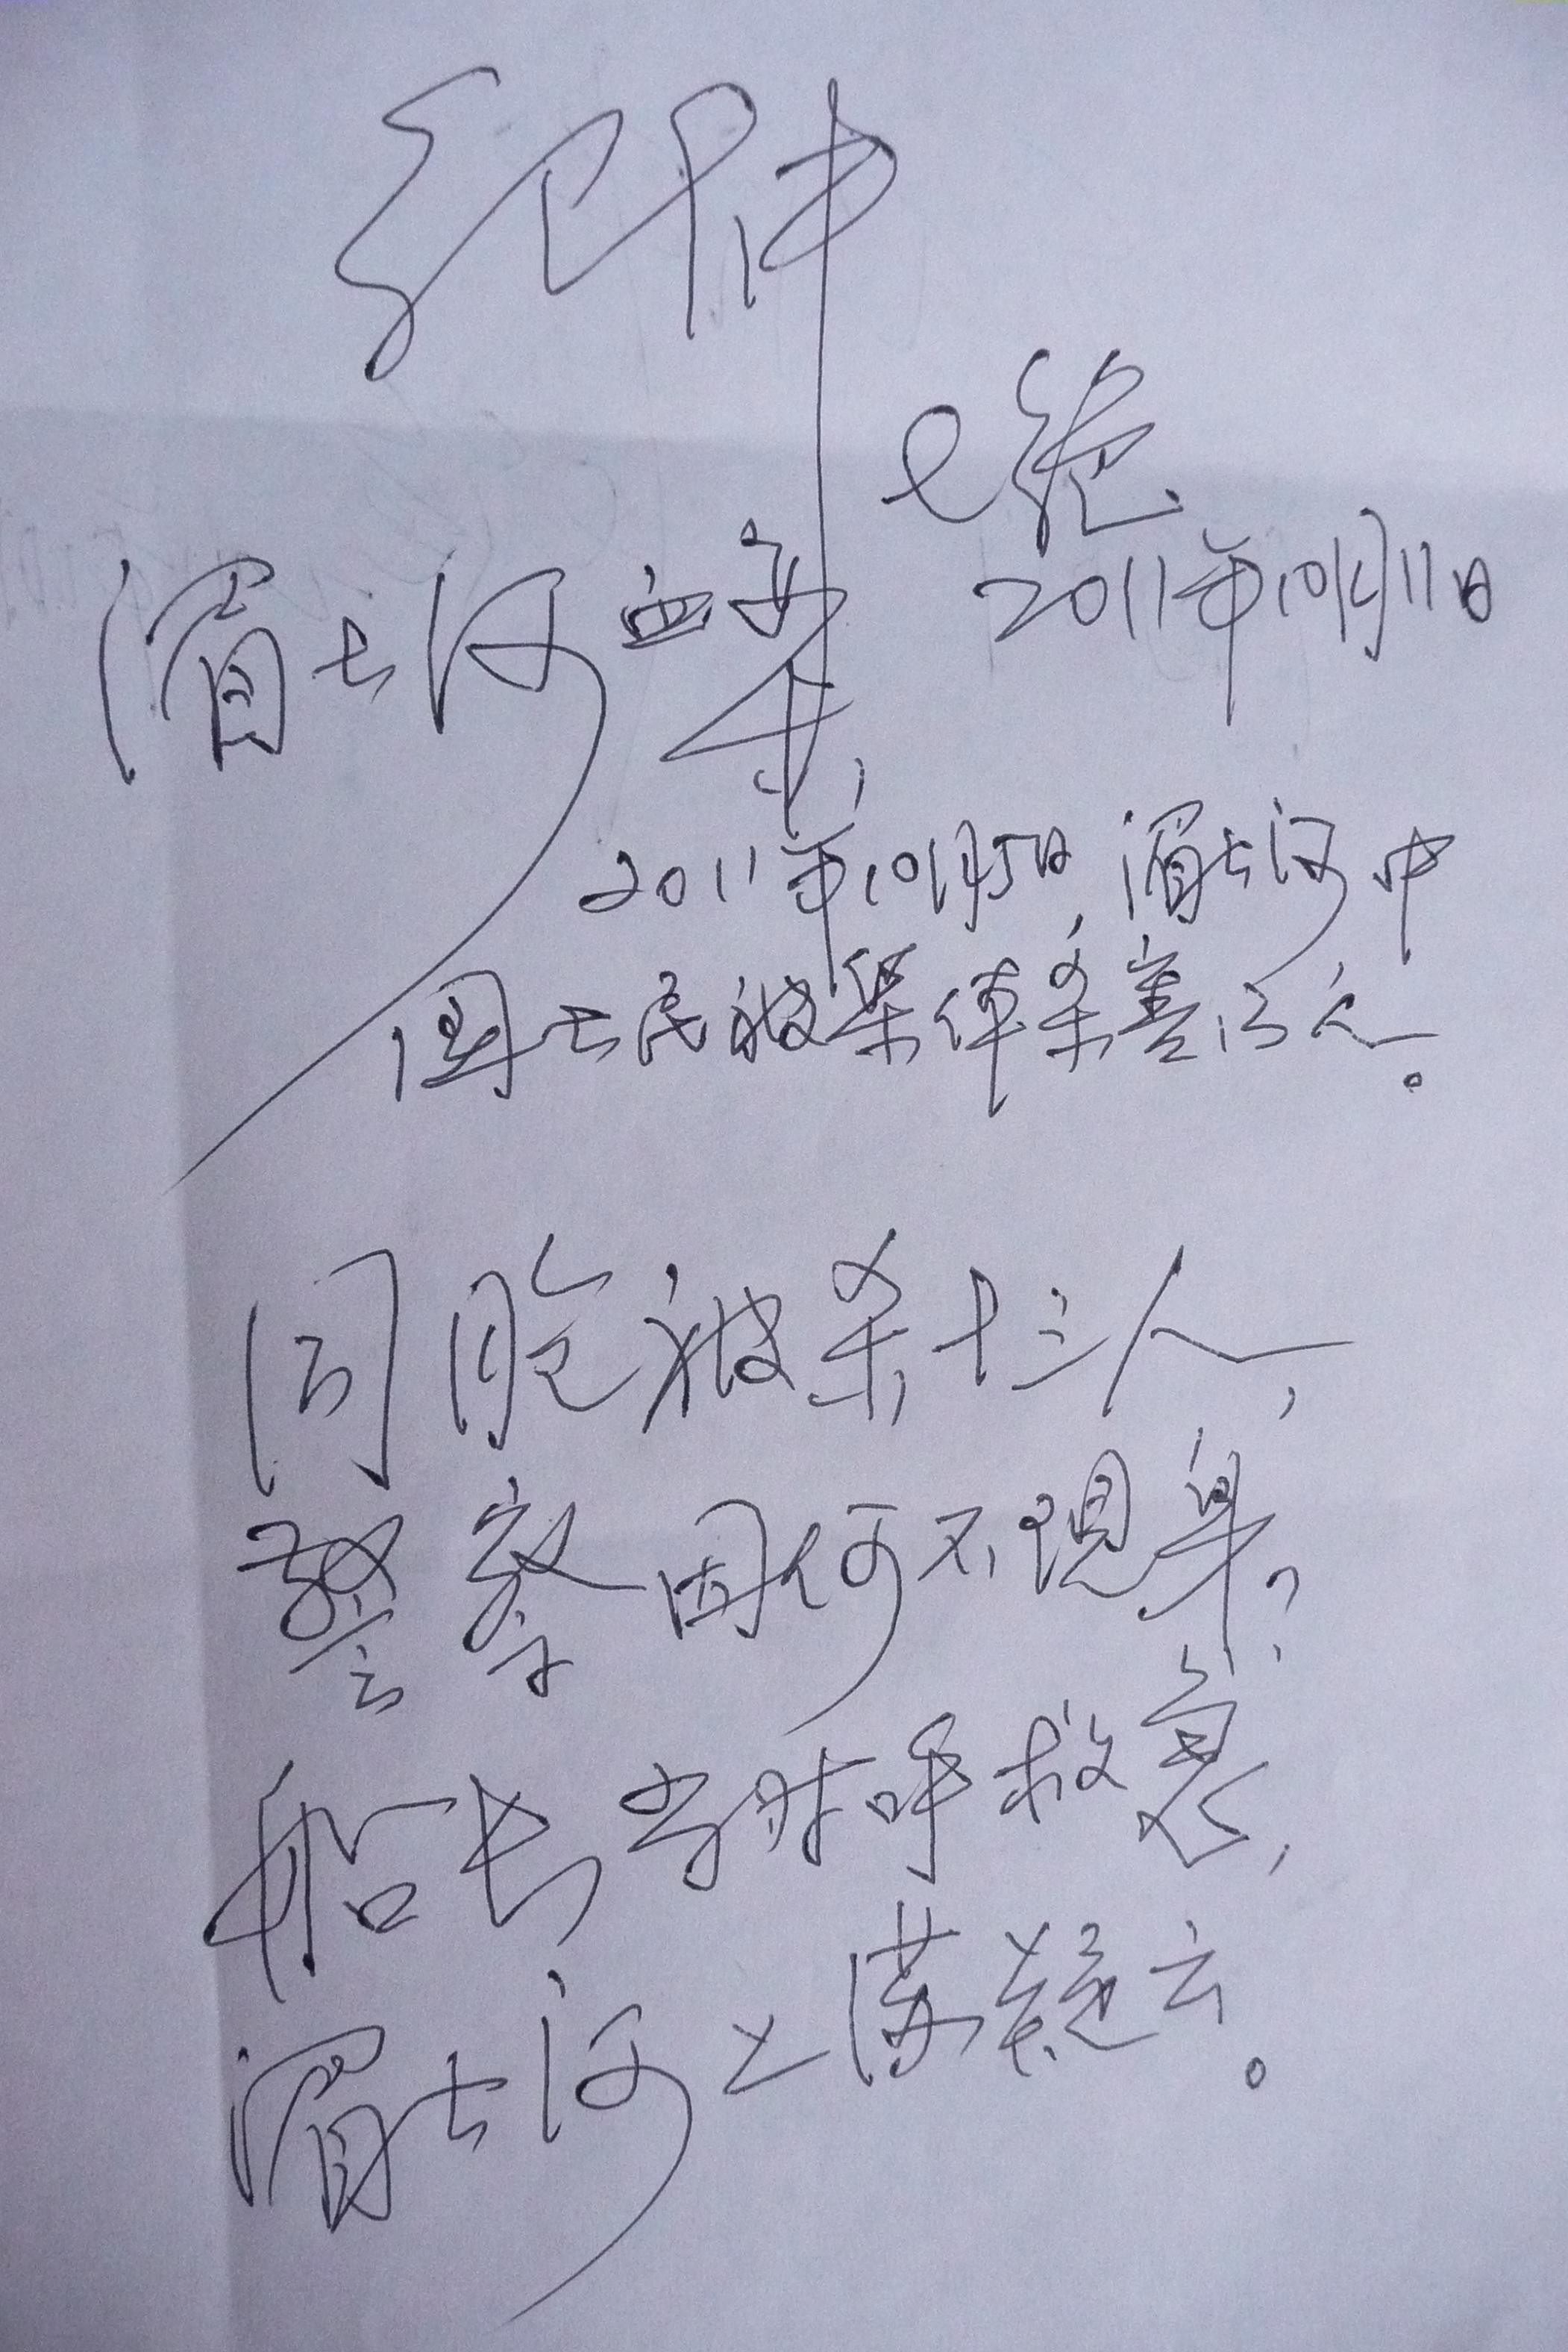 七绝
湄公河血案,
2011年10月11日
2011年10月5日,湄公河中
国公民被集体杀害13人。
同胞被杀十三人,
警察因何不现身?
船长当时呼救急,
湄公河上满疑云。